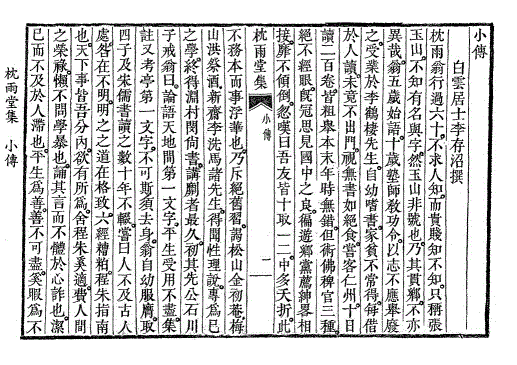 小傳
白雲居士李存沼撰
枕雨翁行過六十不求人知而貴賤知不知只稱張
玉山不知有名與字然玉山非號也乃其貫鄕不亦
異哉翁五歲始語十歲塾師敎功令以志不應舉廢
之受業於李鶴棲先生自幼嗜書家貧不常得每借
於人讀未竟不出門視無書如絶食嘗客仁州十日
讀二百卷皆粗舉本末年時無錯但術佛稗官三種
絶不經眼旣冠思見國中之良徧遊鄕黨薦紳畧相
接靡不傾倒忽嘆曰吾友皆十取一二中多夭折此
枕雨堂集 小傳 二
不務本而事浮華也乃斥絶舊習謁松山金初菴梅
山洪祭酒新齋李洗馬諸先生得聞性理訣專爲已
之學終得淵村閔尙書講劘者最久初其先公石川
子戒翁曰論語天地間第一文字平生受用不盡集
註又考亭第一文字不可斯須去身翁自幼服膺取
四子及朱儒書讀之數十年不輟嘗曰人不及古人
處咎在不明明之之道在格致六經糟粕程朱指南
也天下事皆吾分內欲有所爲舍程朱奚適費人間
之榮祿懶不問學暴也誦其言而不體於心詐也潔
已而不及於人滯也平生爲善善不可盡奚暇爲不
枕雨堂集 小傳